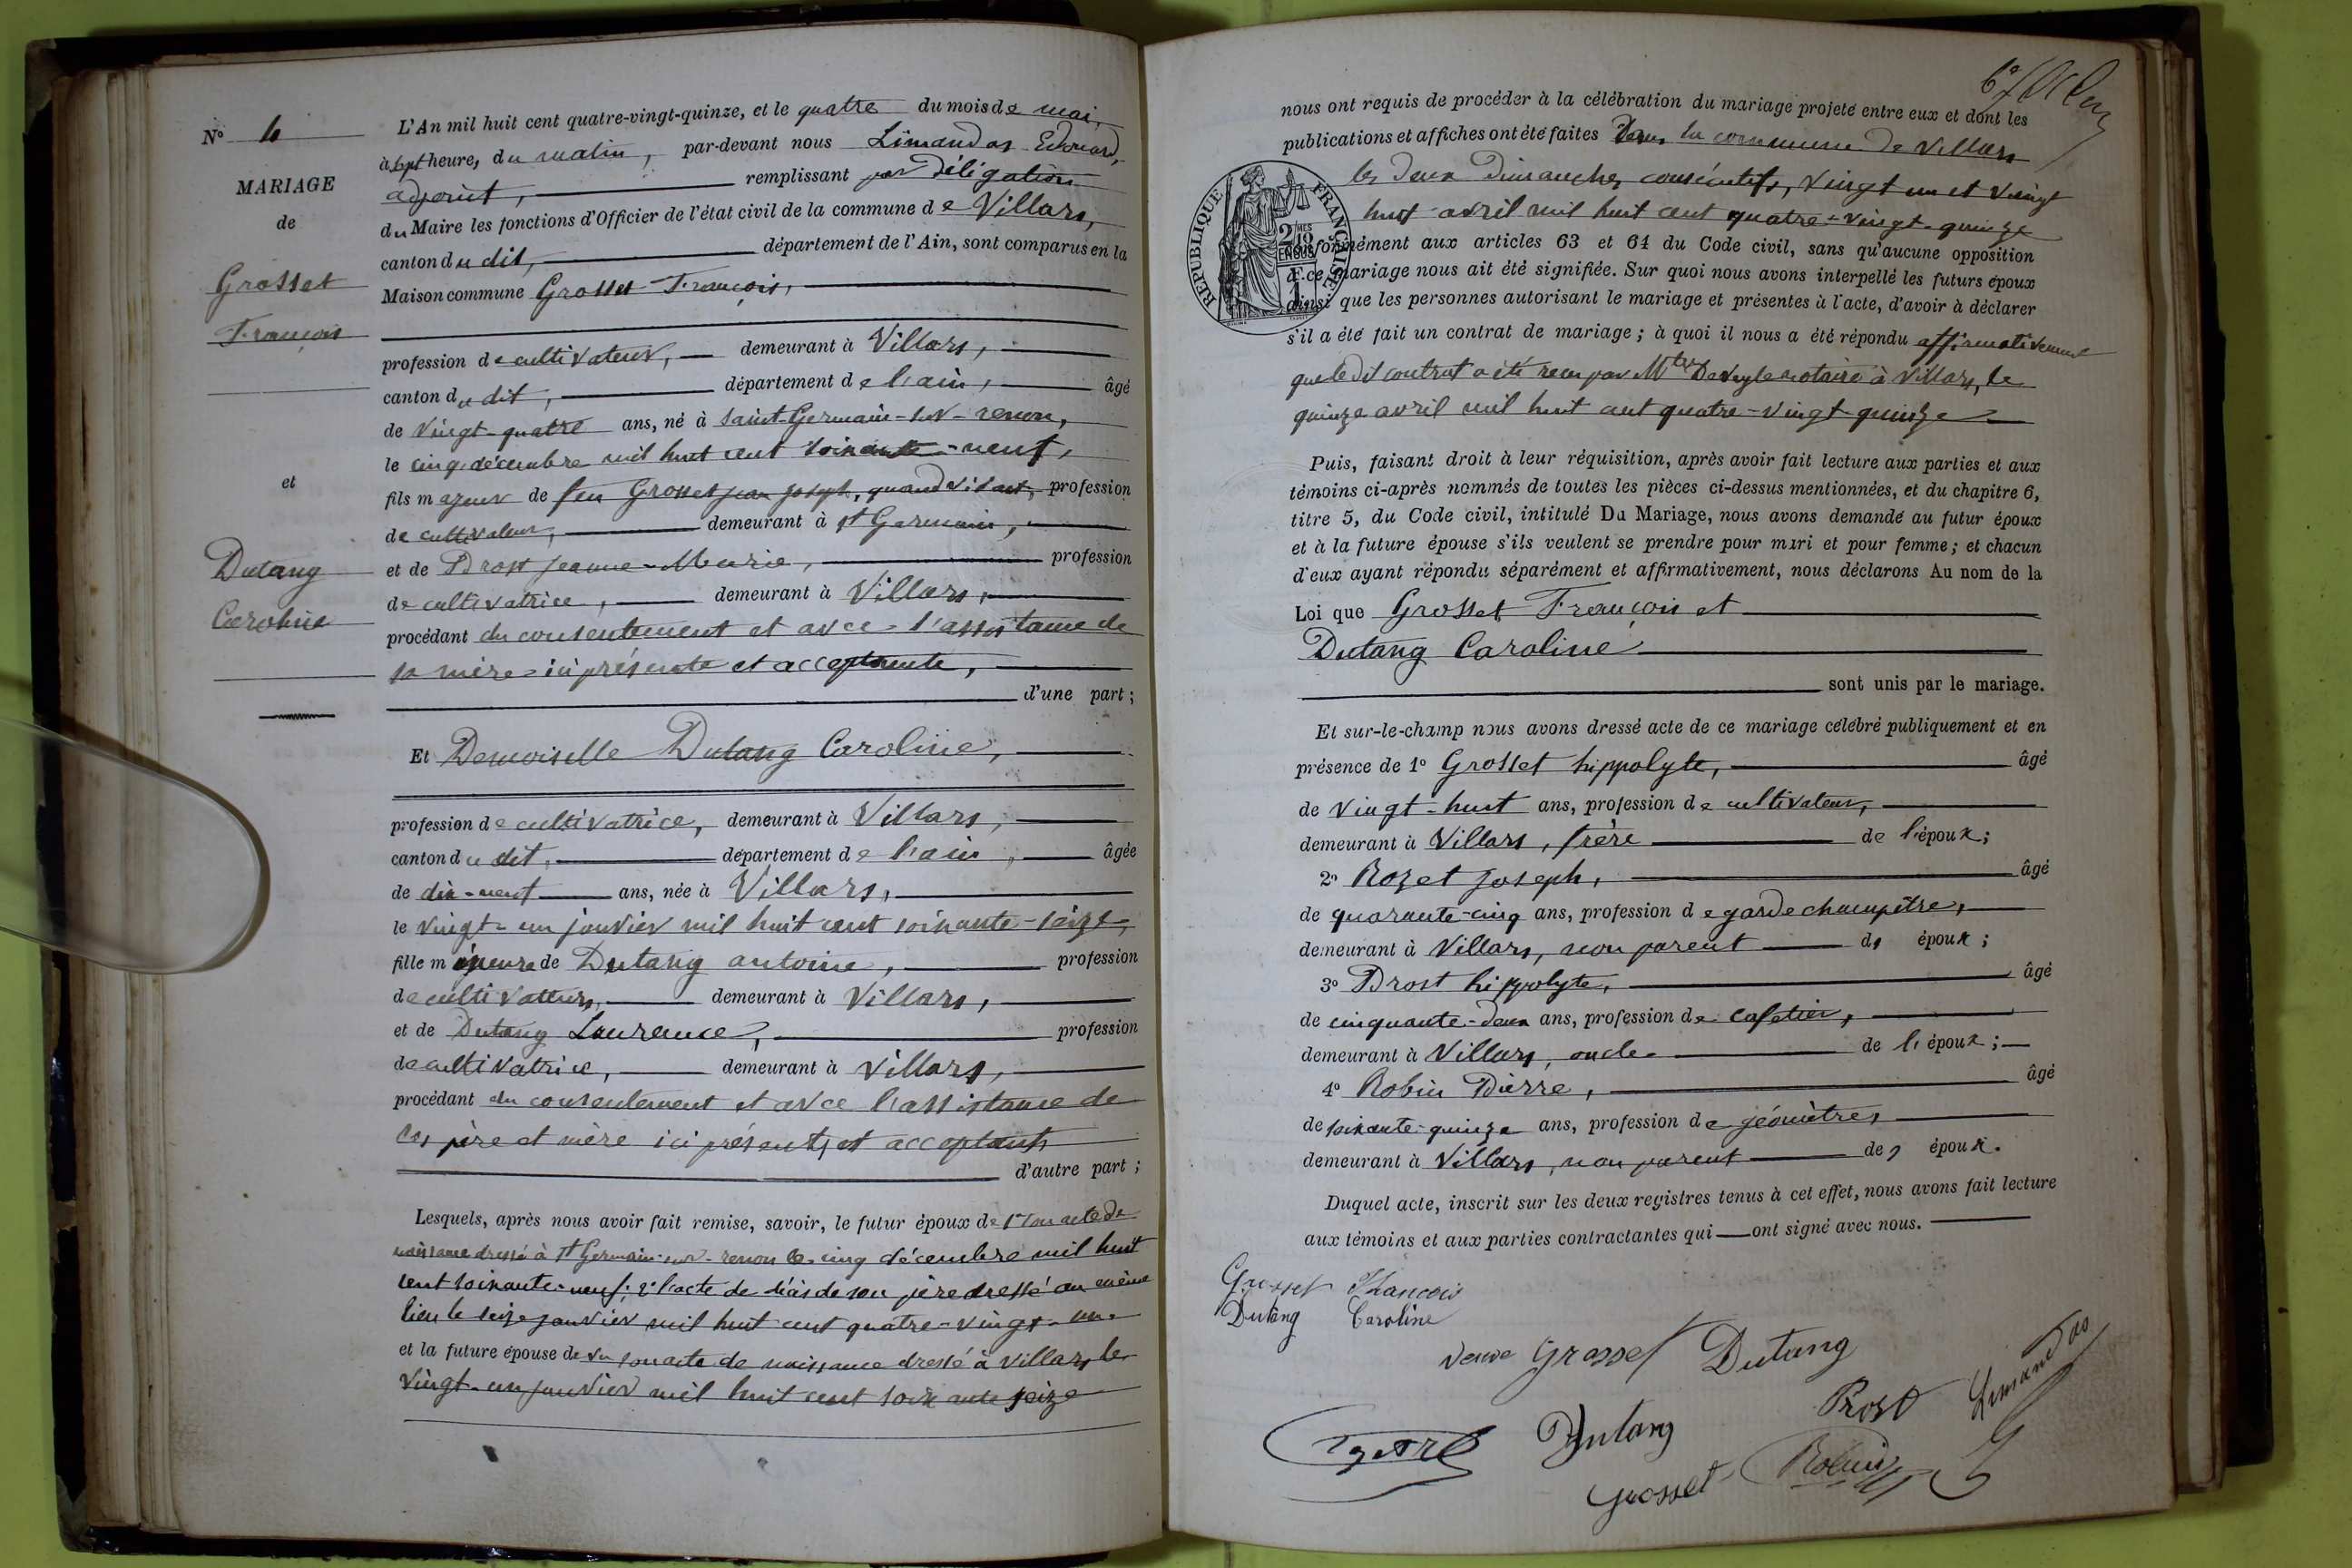 N° 4
MARIAGE
de
Grosset
François
et
Dutang
Caroline
L'An mil huit cent quatre-vingt-quinze, et le quatre du mois de mai,
à sept heure, du matin, par-devant nous Limandas Edouard,
adjoint, remplissant par délégation
du Maire les fonctions d'Officier de l'état civil de la commune de Villars,
canton du dit, département de l'Ain, sont comparus en la
Maison commune Grosset François,
profession de cultivateur, demeurant à Villars,
canton du dit, département de l'ain, âgé
de vingt-quatre ans, né à Saint-Germain-sur-renon,
le cinq décembre mil huit cent soixante-neuf,
fils majeur de feu Grosset jean joseph, quand vivant, profession
de cultivateur, demeurant à st Germain,
et de Prost Jeanne-Marie, profession
de cultivatrice, demeurant à Villars,
procédant du consentement et avec l'assistance de
sa mère ici présente et acceptante,
d'une part ;
Et Demoiselle Dutang Caroline,
profession de cultivatrice, demeurant à Villars,
canton du dit, département de l'ain, âgée
de dix-neuf ans, née à Villars,
le vingt-un janvier mil huit cent soixante-seize,
fille mineure de Dutang antoine, profession
de cultivateurs, demeurant à Villars,
et de Dutang Laurence, profession
de cultivatrice, demeurant à Villars,
procédant du consentement et avec l'assistance de
ses père et mère ici présents et acceptants
d'autre part ;
Lesquels, après nous avoir fait remise, savoir, le futur époux de 1° son acte de
naissance dressé à st Germain-sur-renon le cinq décembre mil huit
cent soixante-neuf; 2° l'acte de décès de son père dressé au même
lieu le seize janvier mil huit cent quatre-vingt-un.
et la future épouse de son acte de naissance dressé à Villars le
vingt-un janvier mil huit cent soixante seize
nous ont requis de procéder à la célébration du mariage projeté entre eux et dont les
publications et affiches ont été faites Dans la commune de Villars
les deux Dimanches consécutifs, vingt un et vingt
huit avril mil huit cent quatre-vingt-quinze
REPUBLIQUE FRANÇAISE
formément aux articles 63 et 64 du Code civil, sans qu'aucune opposition
à ce mariage nous ait été signifiée. Sur quoi nous avons interpellé les futurs époux
ainsi que les personnes autorisant le mariage et présentes à l'acte, d'avoir à déclarer
s'il a été fait un contrat de mariage ; à quoi il nous a été répondu affirmativement
que le dit contrat a été reçu par Mtre notaire à Villars, le
quinze avril mil huit cent quatre-vingt-quinze
Puis, faisant droit à leur réquisition, après avoir fait lecture aux parties et aux
témoins ci-après nommés de toutes les pièces ci-dessus mentionnées, et du chapitre 6,
titre 5, du Code civil, intitulé Du Mariage, nous avons demandé au futur époux
et à la future épouse s'ils veulent se prendre pour mari et pour femme ; et chacun
d'eux ayant répondu séparément et affirmativement, nous déclarons Au nom de la
Loi que Grosset François et
Dutang Caroline
sont unis par le mariage.
Et sur-le-champ nous avons dressé acte de ce mariage célébré publiquement et en
présence de 1° Grosset hippolyte, âgé
de vingt-huit ans, profession de cultivateur,
demeurant à Villars, frère de l'époux ;
2° Rozet joseph, âgé
de quarante-cinq ans, profession de garde champêtre,
demeurant à Villars, non parent des époux ;
3° Prost hippolyte, âgé
de cinquante-deux ans, profession de cafetier,
demeurant à Villars, oncle de l'époux ;
4° Robin Pierre, âgé
de soixante-quinze ans, profession de géomètre,
demeurant à Villars, non parent des époux.
Duquel acte, inscrit sur les deux registres tenus à cet effet, nous avons fait lecture
aux témoins et aux parties contractantes qui ont signé avec nous.
Grosset François
Dutang Caroline
veuve Grosset Dutang
Limandas
Prost
Dutang
Robin
Grosset